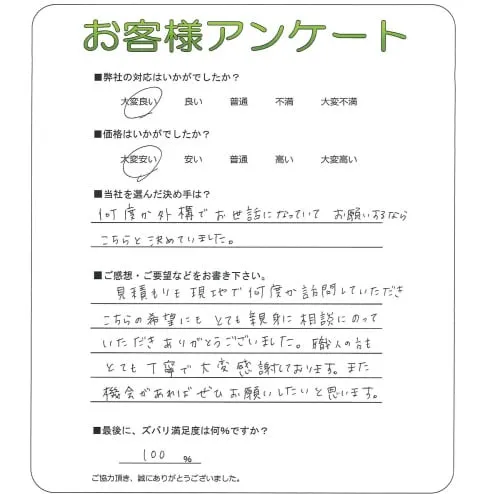 お客様アンケート
■弊社の対応はいかがでしたか?
大変良い 良い 普通 不満 大変不満
■価格はいかがでしたか?
大変安い 安い 普通 高い 大変高い
■当社を選んだ決め手は?
何度か外構でお世話になっていて お願いするなら
こちらと決めていました。
■ご感想・ご要望などをお書き下さい。
見積もりも現地で何度か訪問していただき
こちらの希望にも とても親身に相談にのって
いただきありがとうございました。職人の方も
とても丁寧で大変感謝しております。また
機会があればぜひお願いしたいと思います。
■最後に、ズバリ満足度は何%ですか?
100 %
ご協力頂き、誠にありがとうございました。